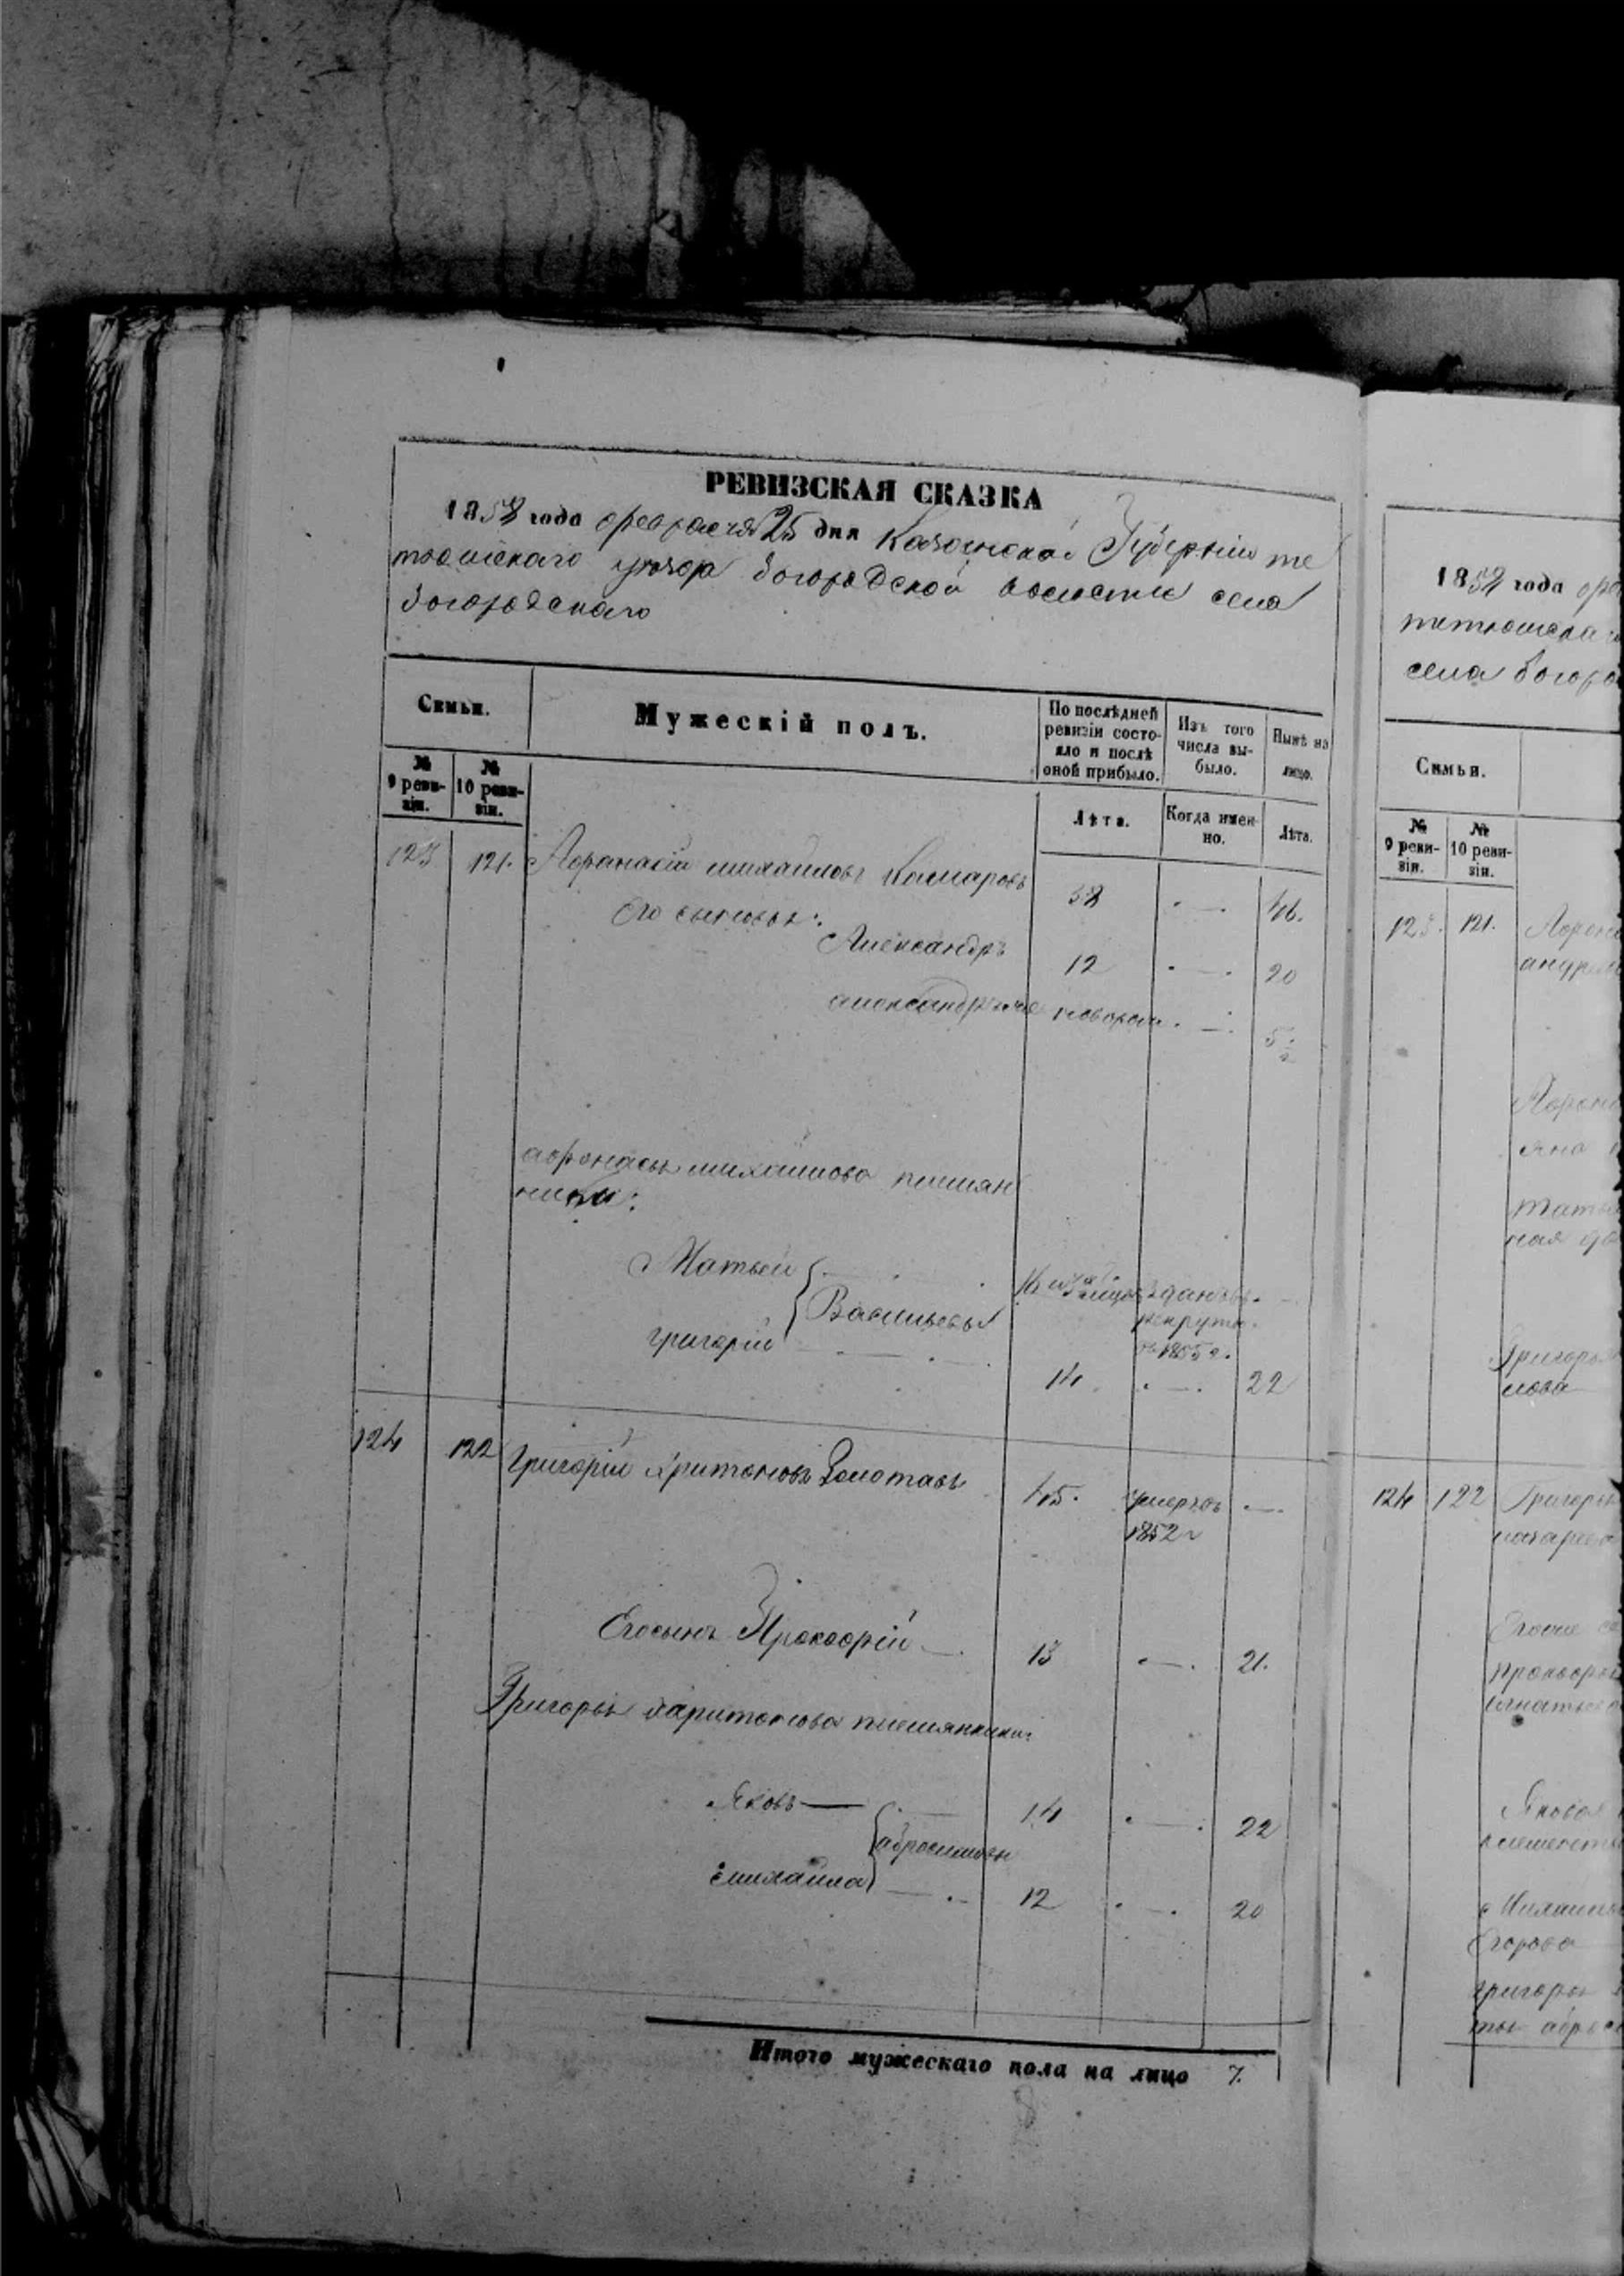 РЕВИЗСКАЯ СКАЗКА
1858 года февраля 25 дня Казанской Губернии те
тюшскаго уезда Богородской волости села
Богородскаго
Семьи.
Мужескій полъ.
По послѣдней ревизіи состо-
яло и послѣ
оной прибыло.
Изъ того
числа вы-
было.
Нынѣ на
лицо.
№
9 реви-
зіи.
№
10 реви-
зіи.
Лѣта.
Когда имен-
но.
Лѣта.
123 121. Афанасій михайловъ Камаровъ 38 46.
Его сыновья:
Александръ 12 20
александръ новорож. 5 1/2
афонасья михайлова племян
ники:
Матвей Васильевы 16 зданъ въ
рекруты
въ 1855 г.
григорій 14 22
124 122 Григорій Хритоновъ Золотавъ 45. умеръ въ
1852 г
Его сынъ Прокофрій 13 21.
Григорья харитонова племянники:
Яковъ 14 22
абросимовы
михаила 12 20
Итого мужескаго пола на лицо 7.
1858 года
тетюшскаго
села Богоро
Семьи.
№
9 реви-
зіи.
№
10 реви-
зіи.
123. 121.
124 122 Григорья
Прокофрья
Игнатьева
Якова
Михаила
Егорова
григорья